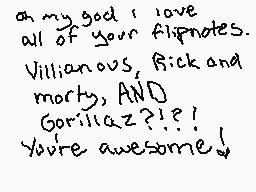 oh my god i love
all of your flipnotes.
Villianous, Rick and
morty, AND
Gorillaz?!?!
You're awesome!